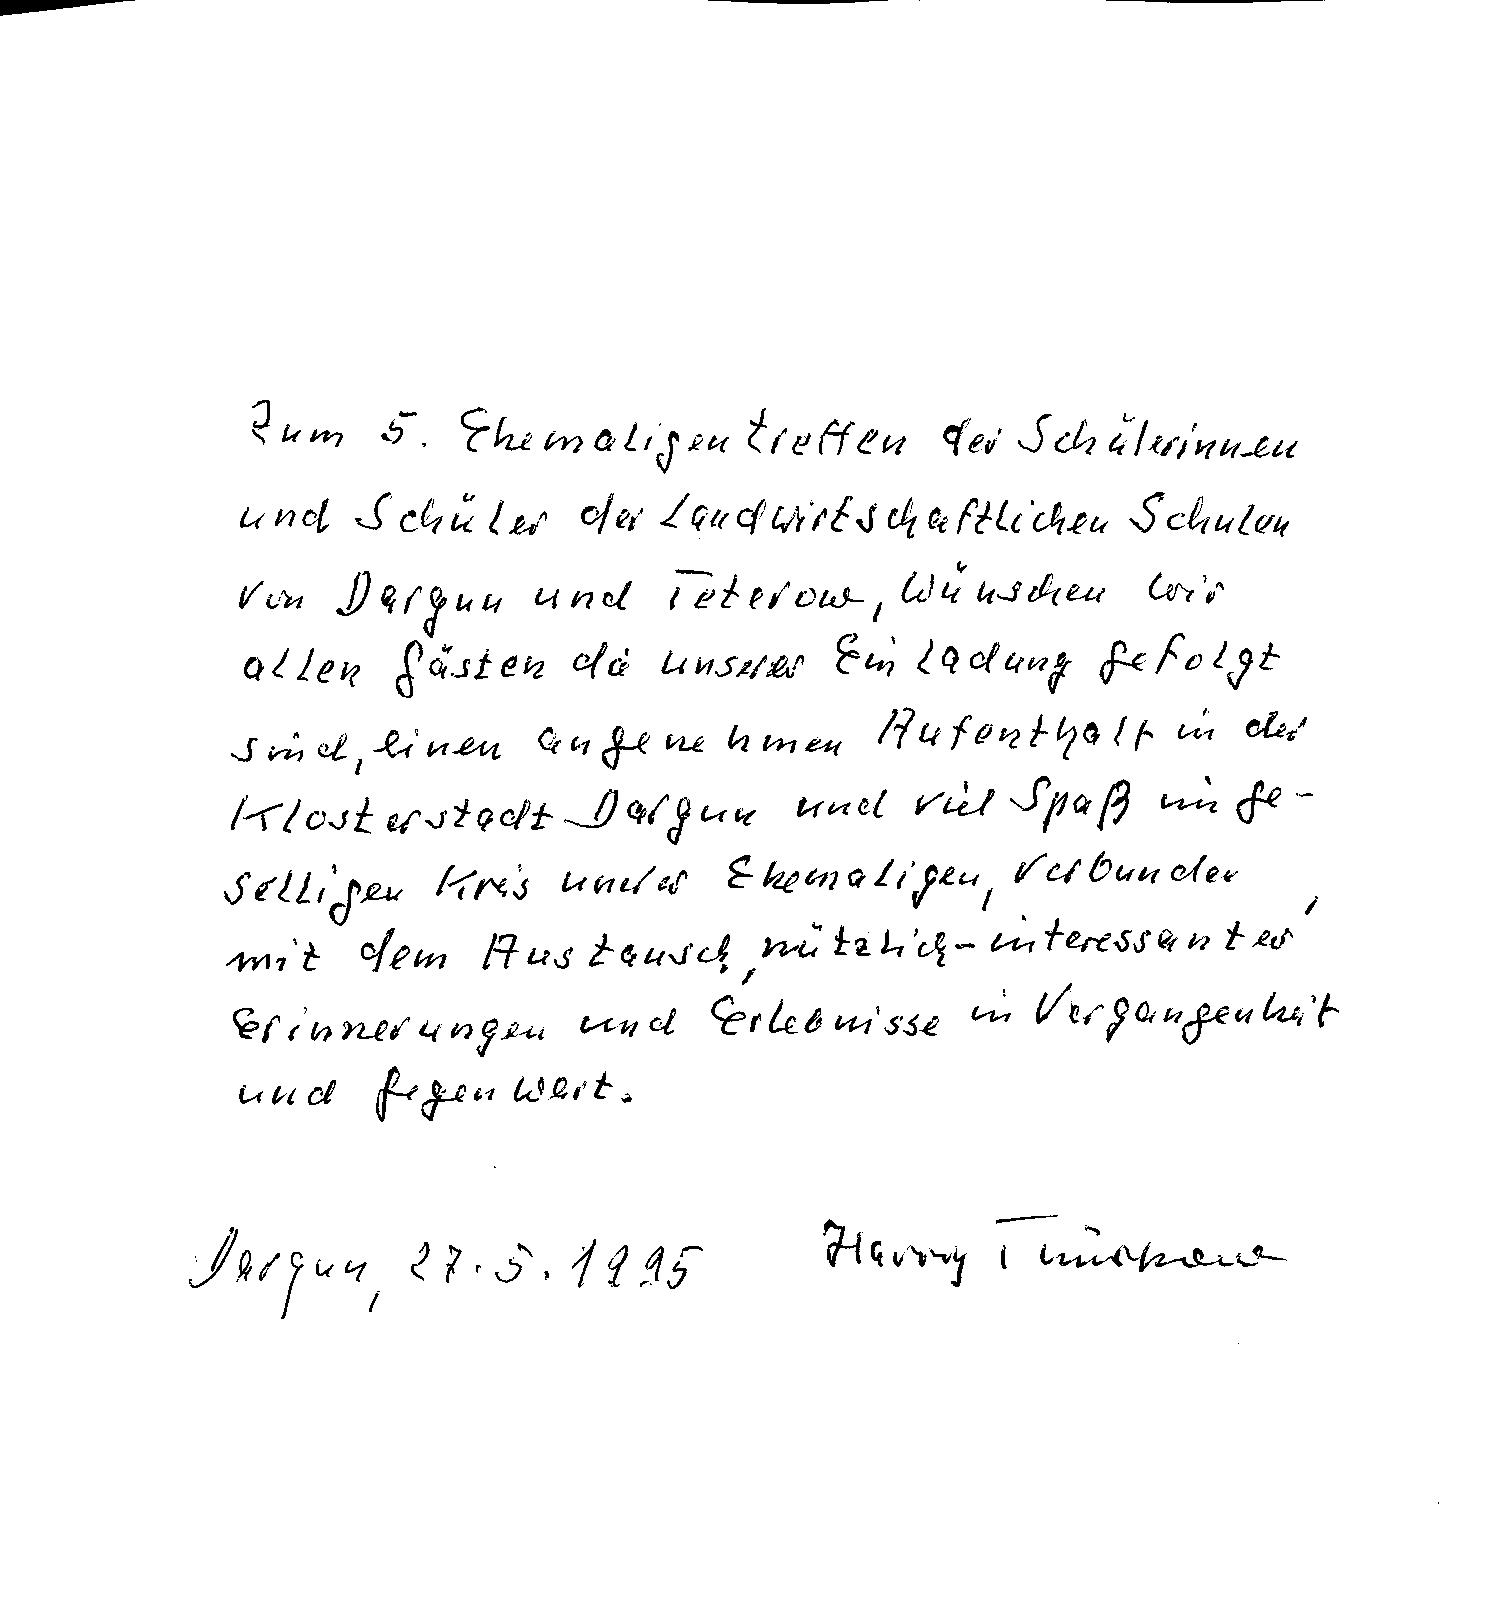 Zum 5. Ehemaligentreffen der Schülerinnen
und Schüler der Landwirtschaftlichen Schulen
von Dargun und Teterow, wünschen wir
allen Gästen die unserer Einladung gefolgt
sind, einen angenehmen Aufenthalt in der
Klosterstadt Dargun und viel Spaß im ge-
selligen Kreis unserer Ehemaligen, verbunden
mit dem Austausch, nützlich-interessanter,
Erinnerungen und Erlebnisse in Vergangenheit
und Gegenwart.
Dargun, 27.5.1995 Harry